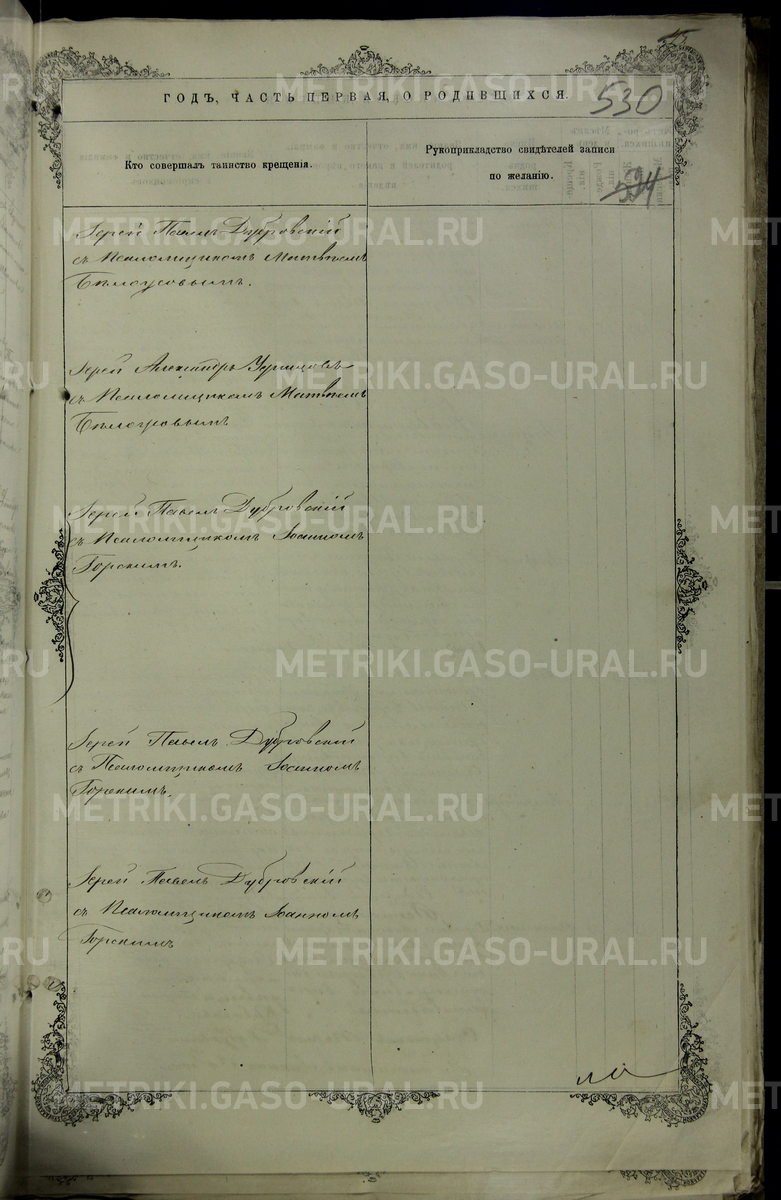 ГОДЪ, ЧАСТЬ ПЕРВАЯ, О РОДИВШИХСЯ.
530
Кто совершалъ таинство крещенія.
Рукоприкладство свидѣтелей записи
по желанію.
Іерей Павелъ Дубровскій
съ Псаломщикомъ Матвѣемъ
Бѣлоусовымъ.
Іерей Александръ
съ Псаломщикомъ Матвѣемъ
Бѣлоусовымъ
Іерей Павелъ Дубровскій
съ Псаломщикомъ Іоанномъ
Горскимъ.
Іерей Павелъ Дубровскій
съ Псаломщикомъ Іоанномъ
Горскимъ.
Іерей Павелъ Дубровскій
съ Псаломщикомъ Іоанномъ
Горскимъ
METRIKI.GASO-URAL.RU